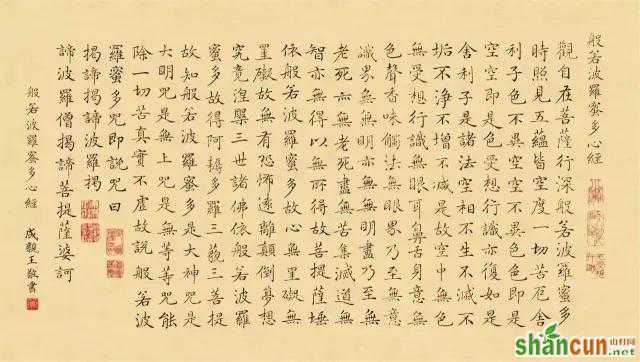 般若波羅蜜多心經
觀自在菩薩行深般若波羅蜜多
時照見五蘊皆空度一切苦厄舍
利子色不異空空不異色色即是
空空即是色受想行識亦復如是
舍利子是諸法空相不生不滅不
垢不淨不增不減是故空中無色
無受想行識無眼耳鼻舌身意無
色聲香味觸法無眼界乃至無意
識界無無明亦無無明盡乃至無
老死亦無老死盡無苦集滅道無
智亦無得以無所得故菩提薩埵
依般若波羅蜜多故心無罣礙無
罣礙故無有恐怖遠離顛倒夢想
究竟涅槃三世諸佛依般若波羅
蜜多故得阿耨多羅三藐三菩提
故知般若波羅蜜多是大神咒是
大明咒是無上咒是無等等咒能
除一切苦真實不虛故說般若波
羅蜜多咒即說咒曰
揭諦揭諦波羅揭
諦波羅僧揭諦菩提薩婆訶
般若波羅蜜多心經
成親王敬書
shancun
山村网
.net